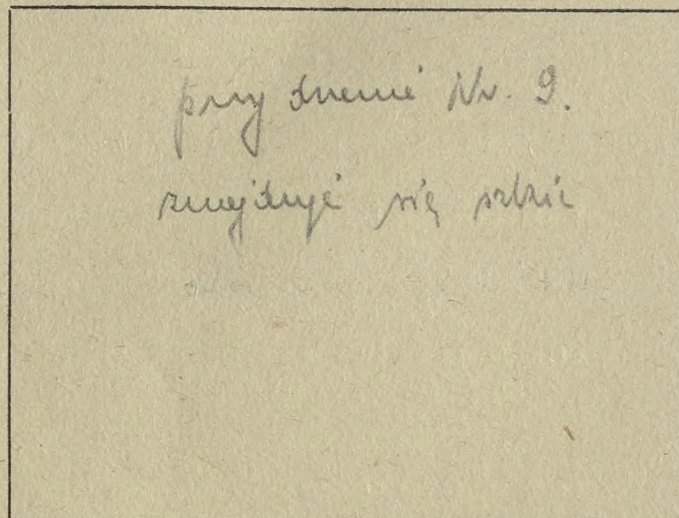 przy drzewie Nr. 9.
znajduje się szkic